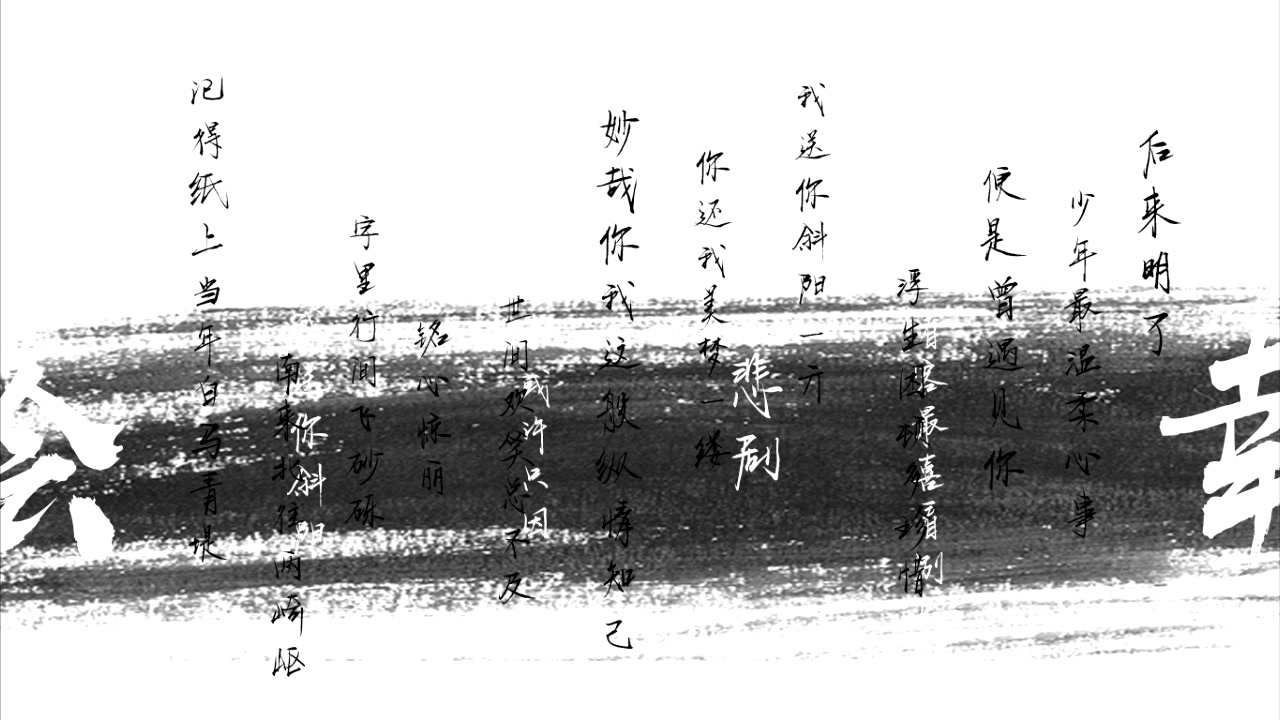 后来明了
少年最温柔心事
便是曾遇见你
浮生
我送你斜阳一方
你还我美梦一缕
悲剧
妙哉你我这般纵情知己
世间欢笑总不及
或许只因
铭心惊丽
字里行间飞砂砾
南来北往两崎岖
你斜阳
记得纸上当年白马青堤
幸